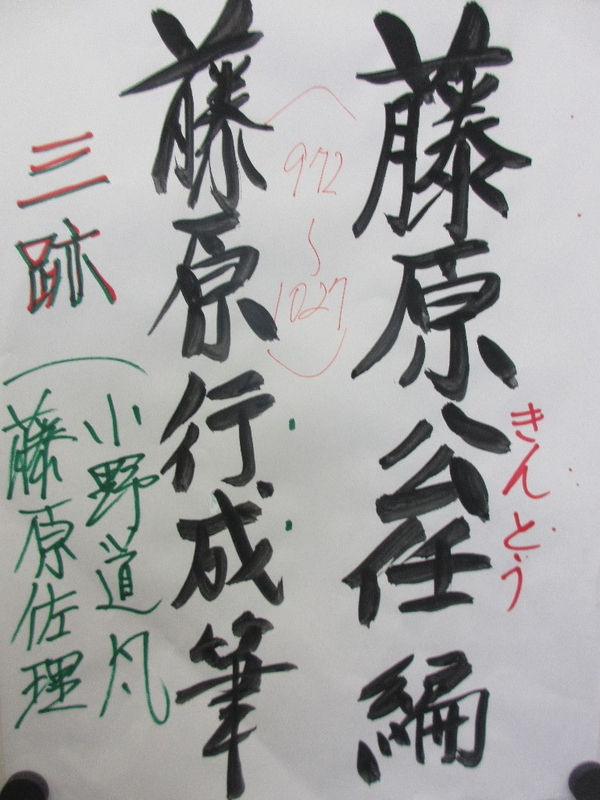 藤原公任編
きんとう
(972~1027)
藤原行成筆
三跡(小野道風
藤原佐理